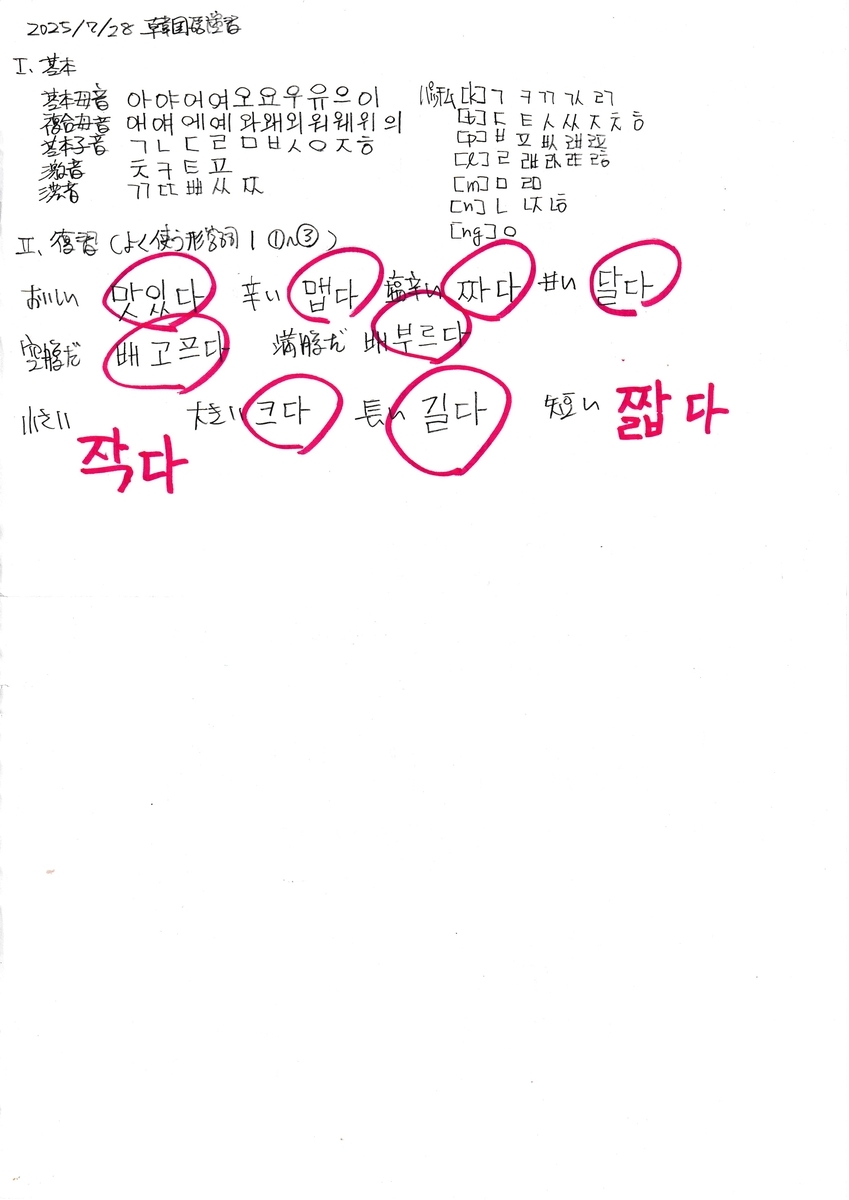 2025/7/28 韓国語学習
I、基本
基本母音 아야어여오요우유으이
複合母音 애얘에예와왜외워웨위의
基本子音 ㄱㄴㄷㄹㅁㅂㅅㅇㅈㅎ
激音 ㅊㅋㅌㅍ
濃音 ㄲㄸㅃㅆㅉ
パッチム [k] ㄱ ㅋ ㄲ ㄳ ㄺ
[t] ㄷ ㅌ ㅅ ㅆ ㅈ ㅊ ㅎ
[p] ㅂ ㅍ ㅄ ㄼ ㄿ
[l] ㄹ ㄼ ㄽ ㄾ ㅀ
[m] ㅁ ㄻ
[n] ㄴ ㄵ ㄶ
[ng] ㅇ
II、復習(よく使う形容詞1 ①~③)
おいしい 맛있다 辛い 맵다 塩辛い 짜다 甘い 달다
空腹だ 배고프다 満腹だ 배부르다
小さい 작다 大きい 크다 長い 길다 短い 짧다